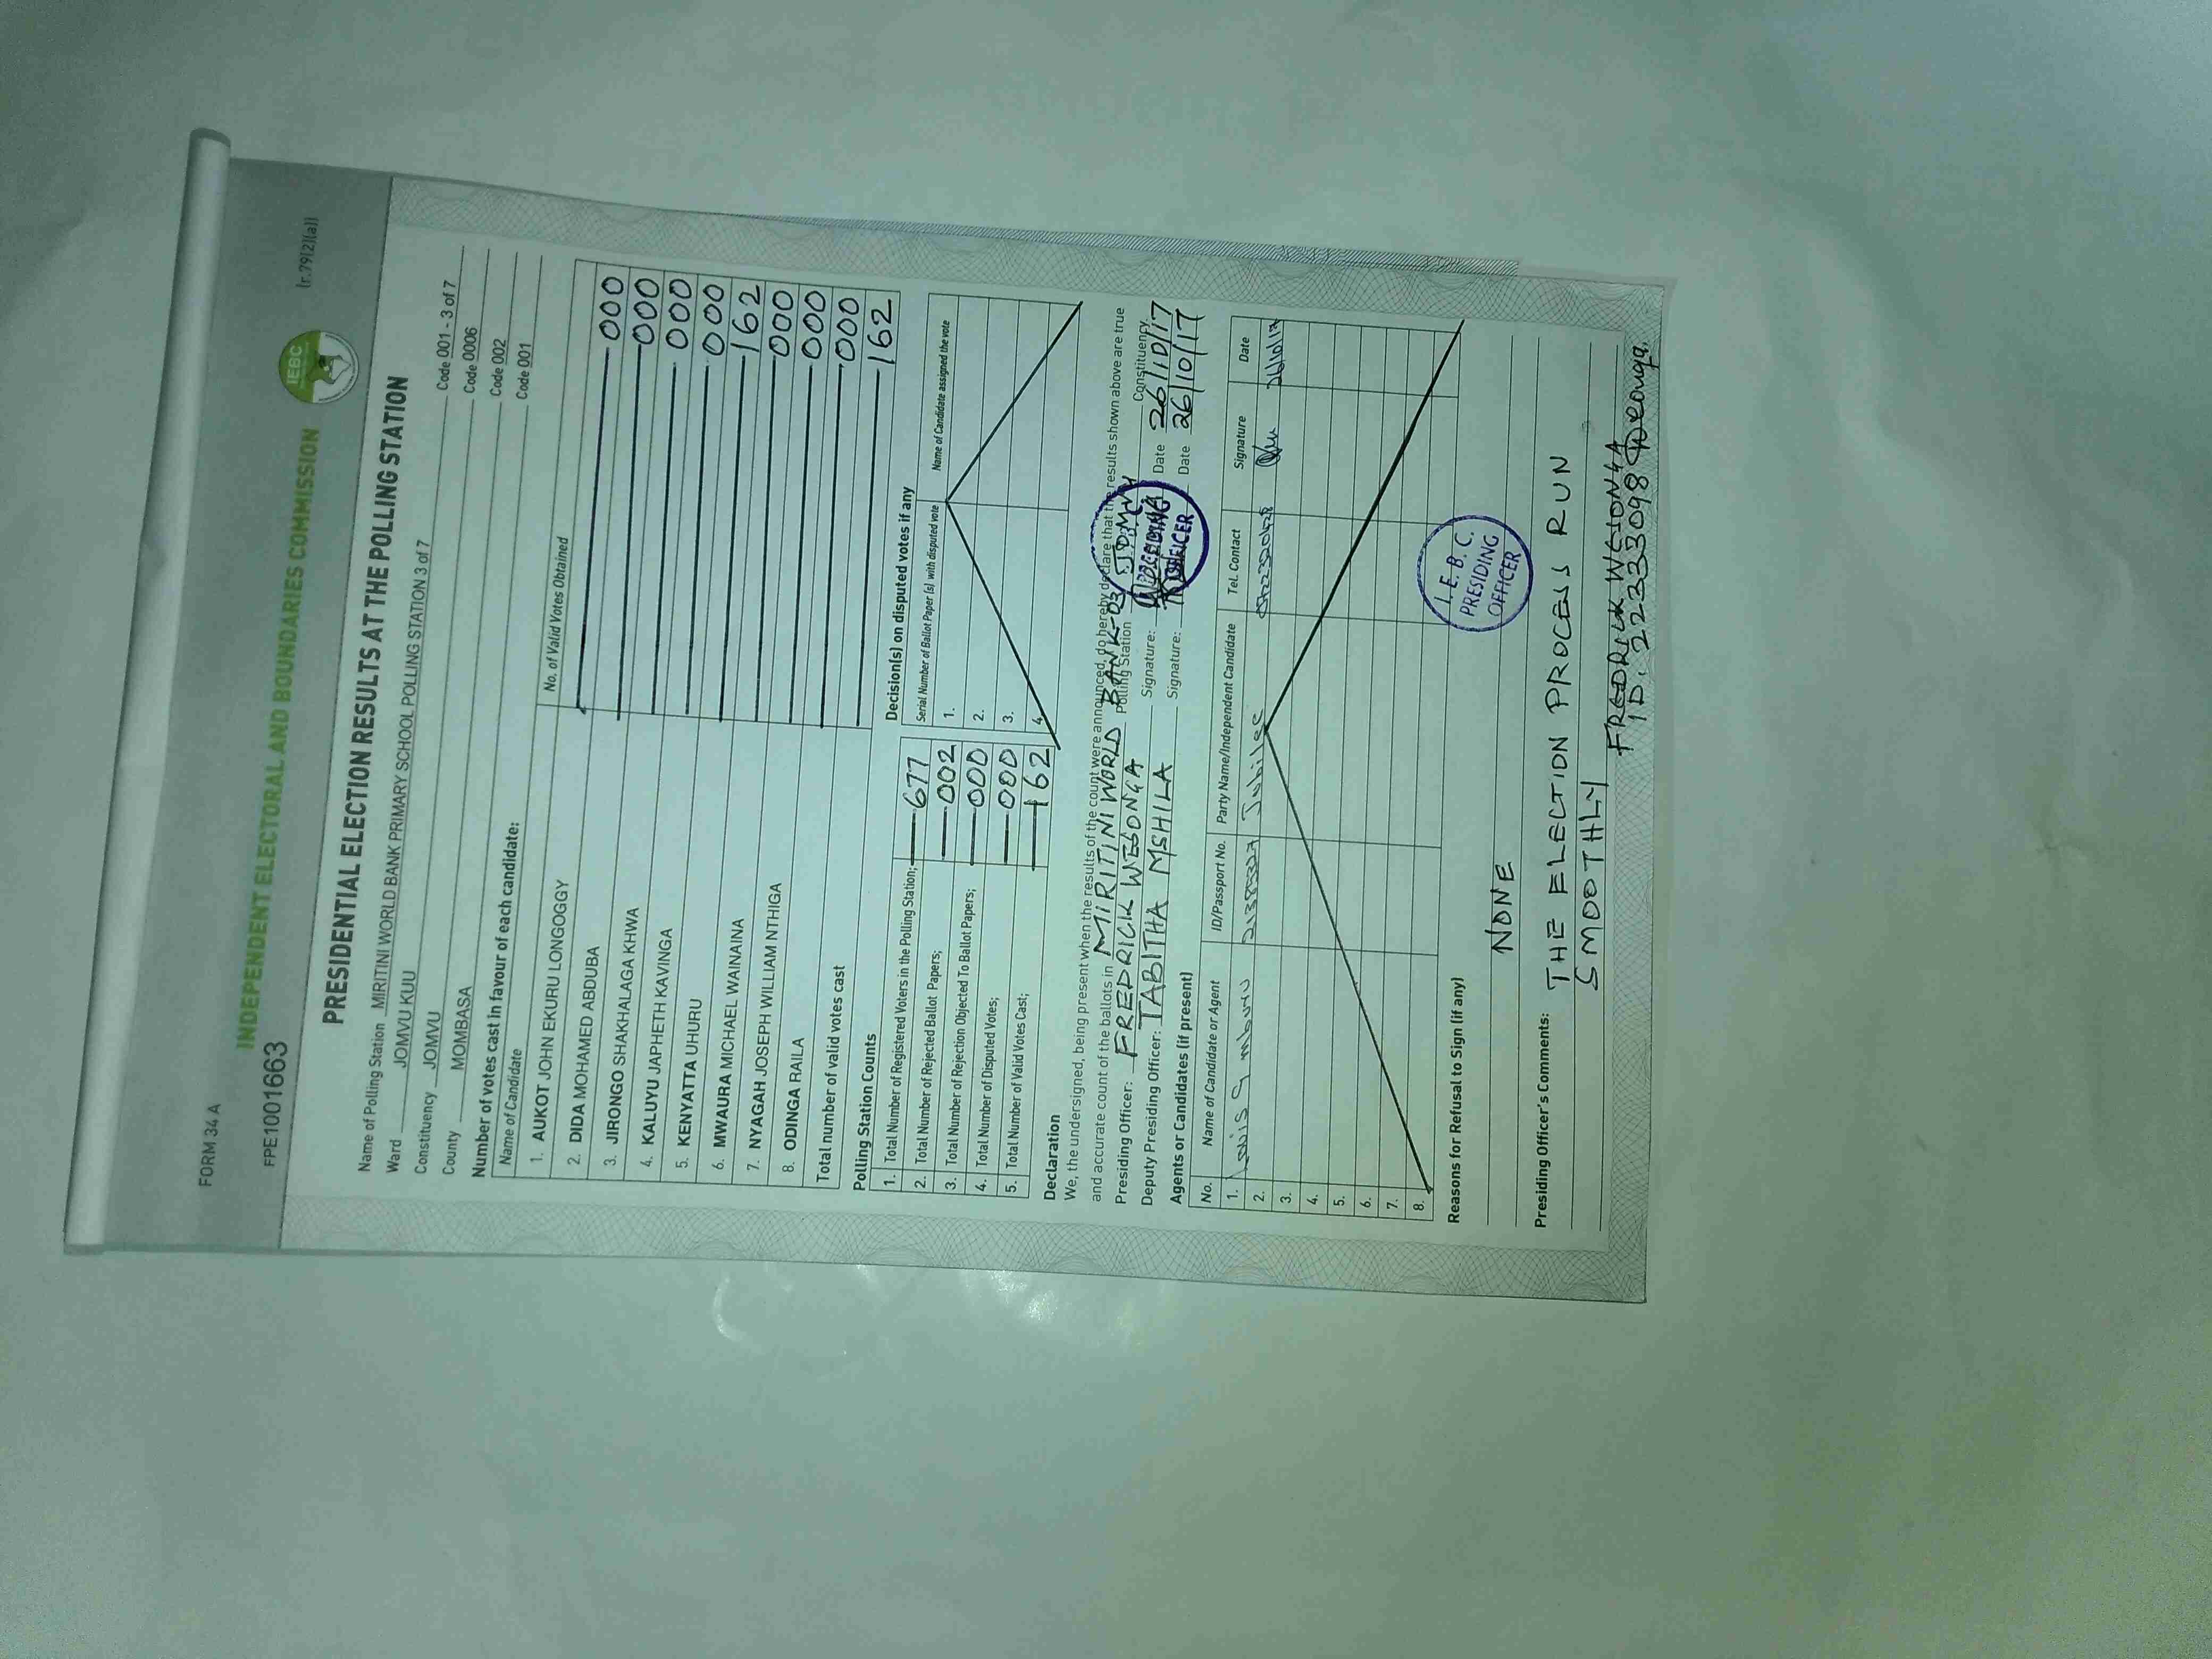 FORM 34 A
(r.79(2)(a))
FPE1001663
INDEPENDENT ELECTORAL AND BOUNDARIES COMMISSION
IEBC
PRESIDENTIAL ELECTION RESULTS AT THE POLLING STATION
Name of Polling Station MIRITINI WORLD BANK PRIMARY SCHOOL POLLING STATION 3 of 7 Code 001 - 3 of 7
Ward JOMVU KUU Code 0006
Constituency JOMVU Code 002
County MOMBASA Code 001
Number of votes cast in favour of each candidate:
Name of Candidate No. of Valid Votes Obtained
1. AUKOT JOHN EKURU LONGOGGY 000
2. DIDA MOHAMED ABDUBA 000
3. JIRONGO SHAKHALAGA KHWA 000
4. KALUYU JAPHETH KAVINGA 000
5. KENYATTA UHURU 162
6. MWAURA MICHAEL WAINAINA 000
7. NYAGAH JOSEPH WILLIAM NTHIGA 000
8. ODINGA RAILA 000
Total number of valid votes cast 162
Polling Station Counts
1. Total Number of Registered Voters in the Polling Station; 677
2. Total Number of Rejected Ballot Papers; 002
3. Total Number of Rejection Objected To Ballot Papers; 000
4. Total Number of Disputed Votes; 000
5. Total Number of Valid Votes Cast; 162
Decision(s) on disputed votes if any
Serial Number of Ballot Paper (s) with disputed vote Name of Candidate assigned the vote
1.
2.
3.
4.
Declaration
We, the undersigned, being present when the results of the count were announced, do hereby declare that the results shown above are true
and accurate count of the ballots in MIRITINI WORLD BANK-03 Polling Station JOMVU Constituency.
Presiding Officer: FREDRICK WESONGA Signature: Date 26/10/17
Deputy Presiding Officer: TABITHA MSHILA Signature: Date 26/10/17
PRESIDING
OFFICER
Agents or Candidates (if present)
No. Name of Candidate or Agent ID/Passport No. Party Name/Independent Candidate Tel. Contact Signature Date
1. G mburu Jubilee 26/10/17
2.
3.
4.
5.
6.
7.
8.
I. E. B. C.
PRESIDING
OFFICER
Reasons for Refusal to Sign (if any)
NONE
Presiding Officer's Comments: THE ELECTION PROCESS RUN
SMOOTHLY
FREDRICK WESONGA
ID. 22333098